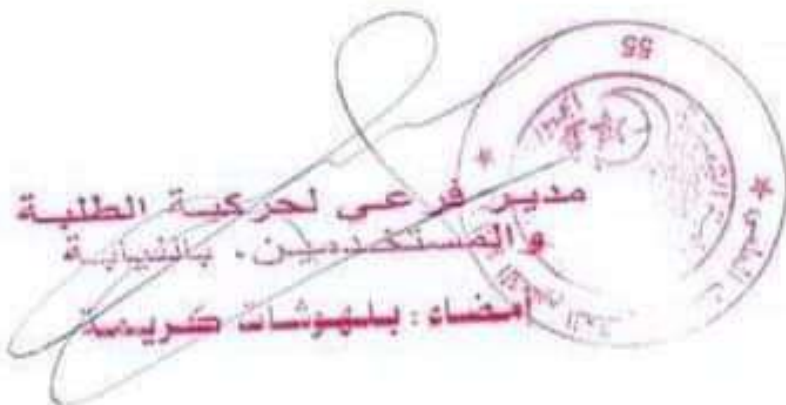 55
مدير فرعي لحركية الطلبة
والمستخدمين. بالنيابة
أمضاء : بلهوشات كريمة